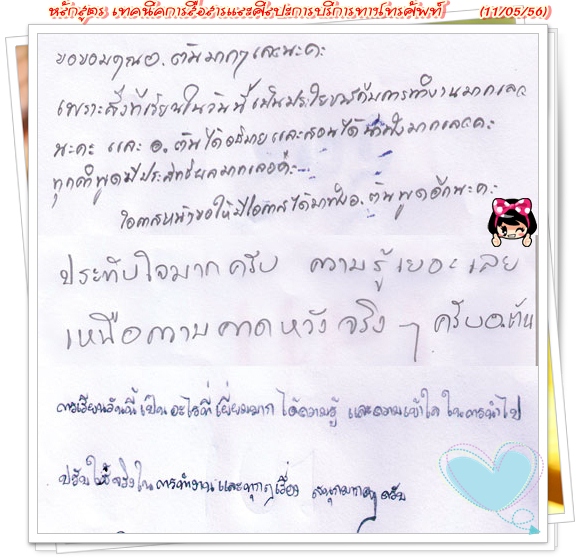 หลักสูตร เทคนิคการสื่อสารและศิลปะการบริการทางโทรศัพท์ (11/05/56)
ขอขอบคุณอ. ต้นมากๆ เลยนะคะ
เพราะสิ่งที่เรียนในวันนี้ เป็นประโยชน์กับการทำงานมากเลย
นะคะ และ อ. ต้นได้อธิบาย และสอนได้น่าฟังมากเลยค่ะ
ทุกคำพูดมีประสิทธิผลมากเลยค่ะ
โอกาสหน้าขอให้มีโอกาสได้มาฟังอ. ต้นพูดอีกนะคะ
ประทับใจมาก ครับ ความรู้ เยอะ เลย
เหนือความคาดหวัง จริง ๆ ครับอ.ต้น
การเรียนวันนี้ เป็นอะไรที่ เยี่ยมมาก ได้ความรู้ และความเข้าใจ ในการนำไป
ปรับใช้จริงใน การทำงาน และทุกๆเรื่อง สนุกมากๆ ครับ